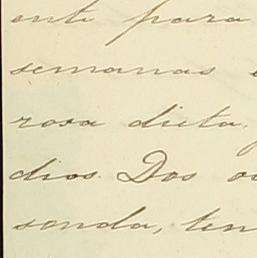 ente para
semanas
rosa dieta.
dios. Dos
sonda, ten